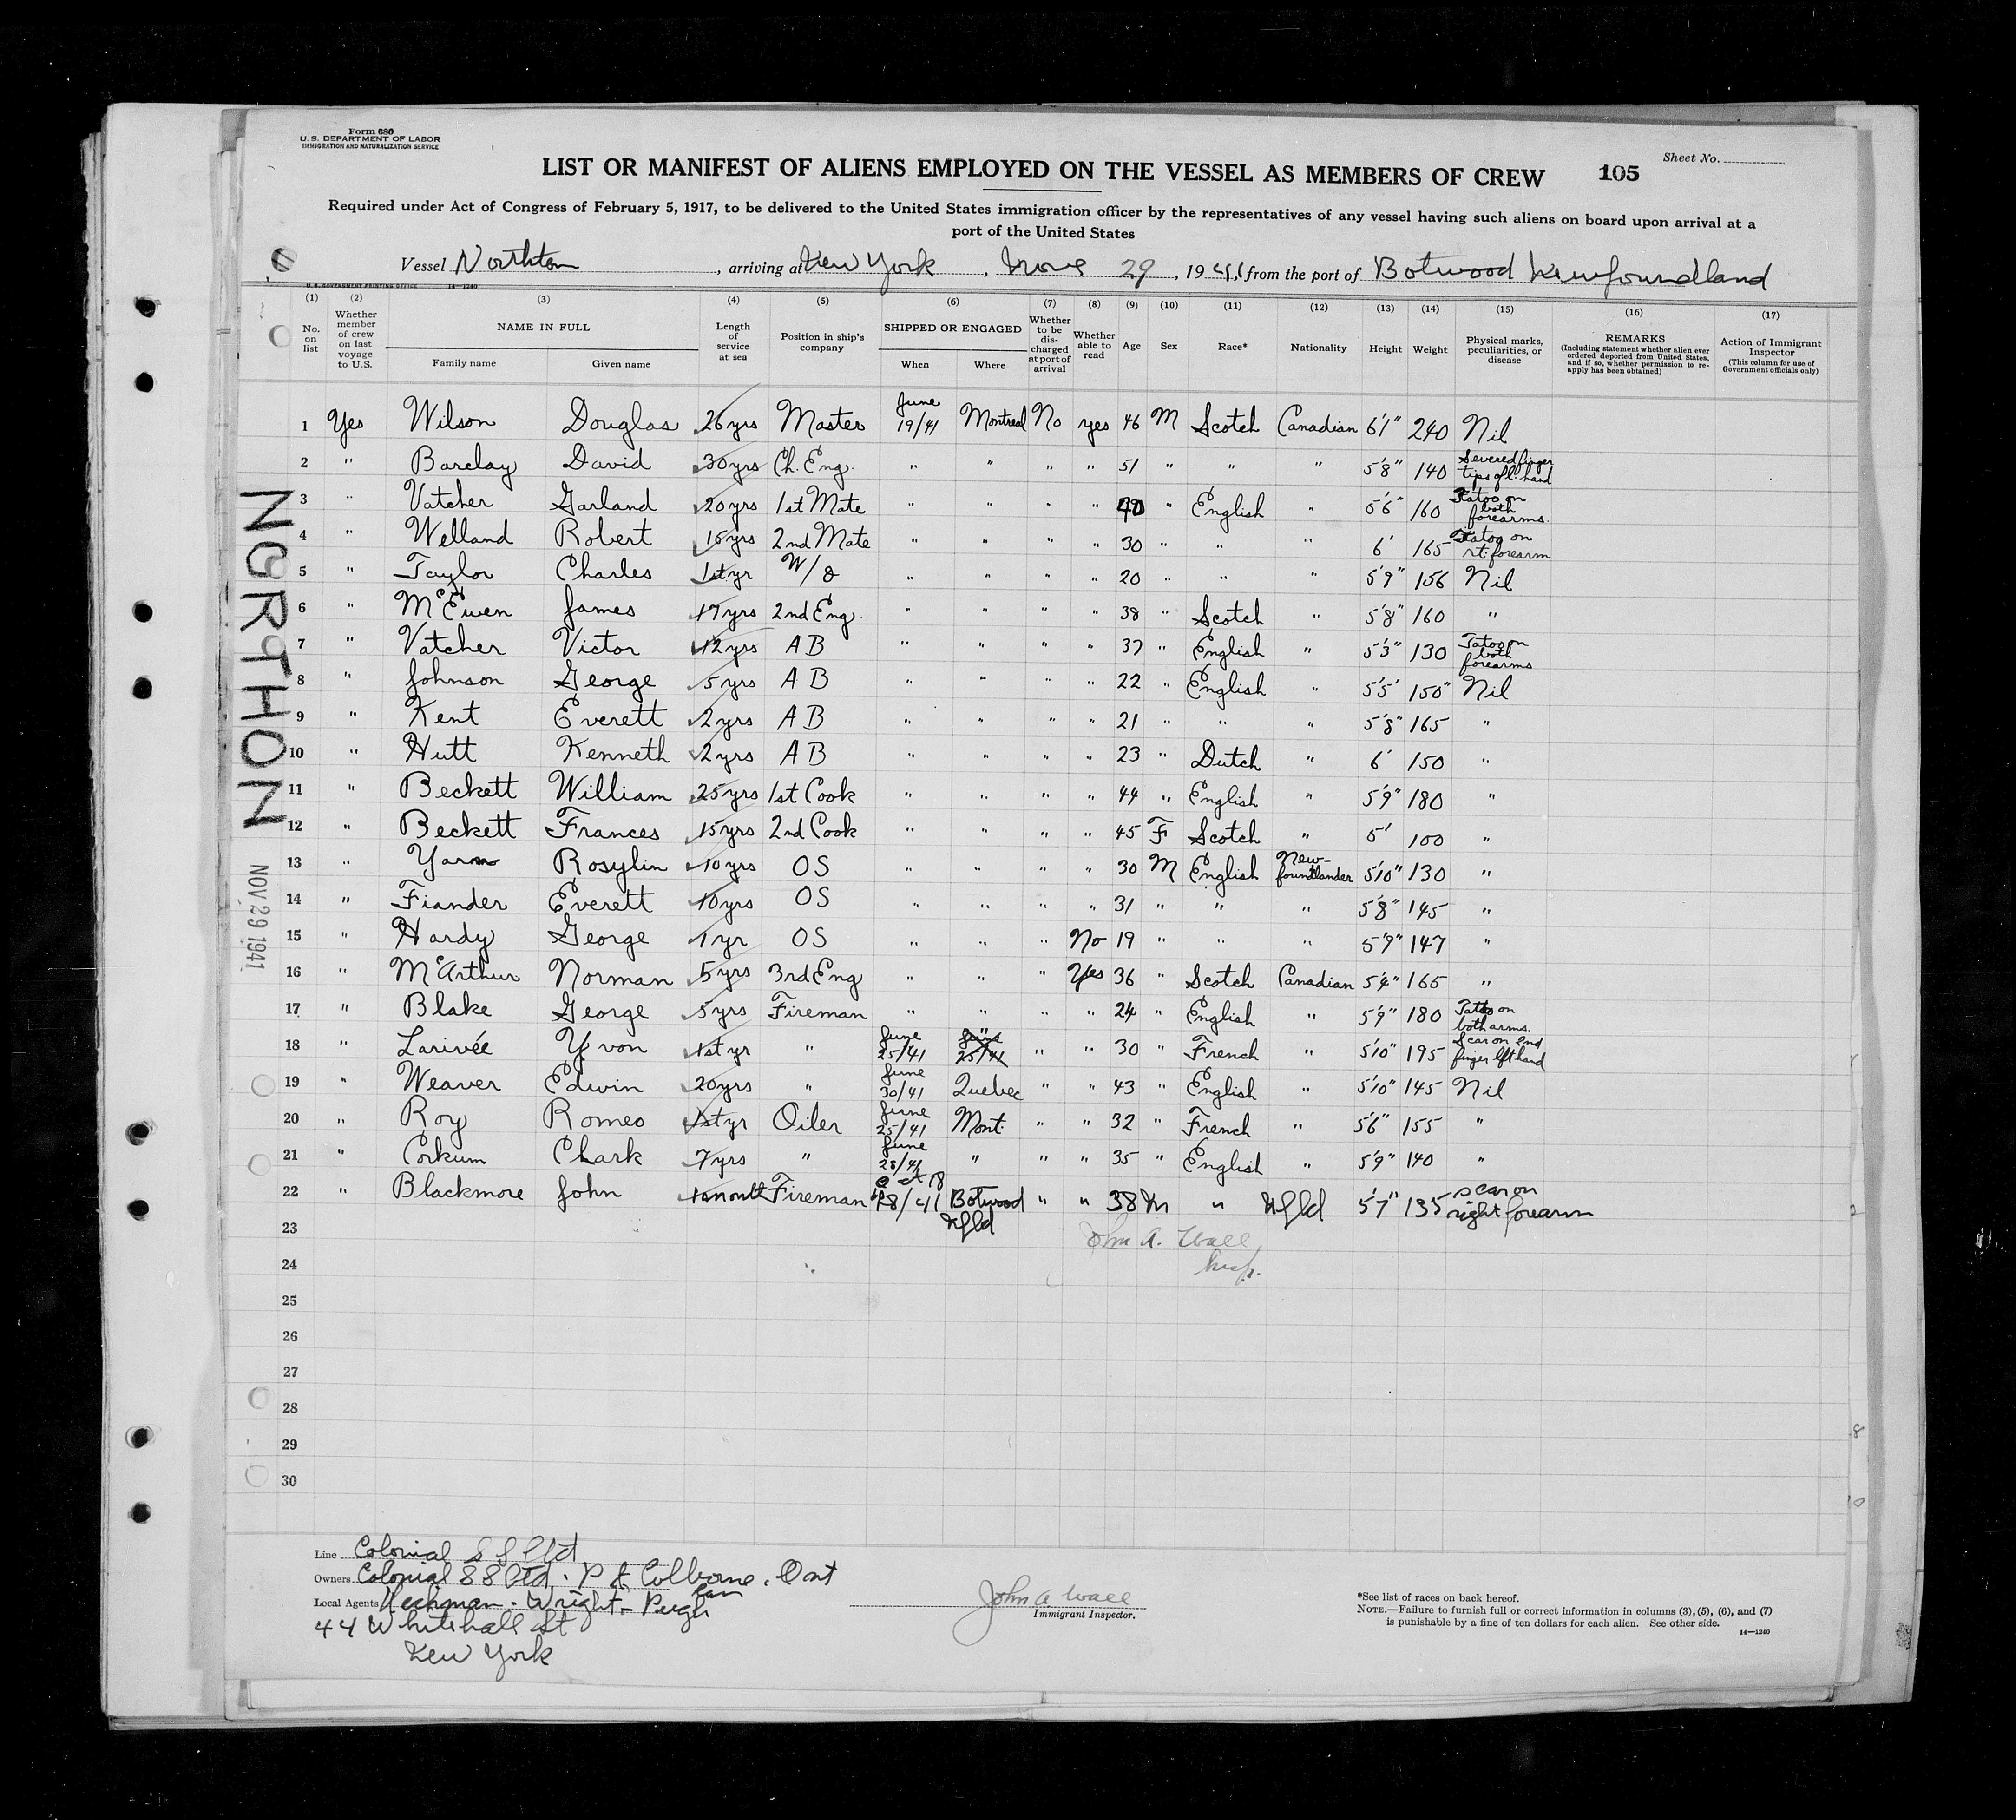 Form 680
U.S. DEPARTMENT OF LABOR
IMMIGRATION AND NATURALIZATION SERVICE
Sheet No.
LIST OR MANIFEST OF ALIENS EMPLOYED ON THE VESSEL AS MEMBERS OF CREW 105
Required under Act of Congress of February 5, 1917, to be delivered to the United States immigration officer by the representatives of any vessel having such aliens on board upon arrival at a
port of the United States
Vessel Northton, arriving at New York, Nove 29, 1941, from the port of Botwood Newfoundland
U.S. GOVERNMENT PRINTING OFFICE 14—1240
(1) (2) (3) (4) (5) (6) (7) (8) (9) (10) (11) (12) (13) (14) (15) (16) (17)
No. on list
Whether member of crew on last voyage to U.S.
NAME IN FULL
Family name Given name
Length of service at sea
Position in ship's company
SHIPPED OR ENGAGED
When Where
Whether to be discharged at port of arrival
Whether able to read
Age
Sex
Race*
Nationality
Height
Weight
Physical marks, peculiarities, or disease
REMARKS
(Including statement whether alien ever ordered deported from United States, and if so, whether permission to re-apply has been obtained)
Action of Immigrant Inspector
(This column for use of Government officials only)
1 Yes Wilson Douglas 26 yrs Master June 19/41 Montreal No yes 46 M Scotch Canadian 6'1" 240 Nil
2 " Barclay David 30 yrs Ch. Eng. " " " " 51 " " " 5'8" 140 Severed finger tips of l. hand
3 " Vatcher Garland 20 yrs 1st Mate " " " " 40 " English " 5'6" 160 Tatoo on both forearms.
4 " Welland Robert 15 yrs 2nd Mate " " " " 30 " " " 6' 165 Tatoo on rt. forearm
5 " Taylor Charles 1st yr W/O " " " " 20 " " " 5'9" 156 Nil
6 " McEwen James 17 yrs 2nd Eng. " " " " 38 " Scotch " 5'8" 160 "
7 " Vatcher Victor 12 yrs A B " " " " 37 " English " 5'3" 130 Tatoo on both forearms
8 " Johnson George 5 yrs A B " " " " 22 " English " 5'5' 150" Nil
9 " Kent Everett 2 yrs A B " " " " 21 " " " 5'8" 165 "
10 " Hutt Kenneth 2 yrs A B " " " " 23 " Dutch " 6' 150 "
11 " Beckett William 25 yrs 1st Cook " " " " 44 " English " 5'9" 180 "
12 " Beckett Frances 15 yrs 2nd Cook " " " " 45 F Scotch " 5' 100 "
13 " Yarn Rosylin 10 yrs OS " " " " 30 M English New-foundlander 5'10" 130 "
14 " Fiander Everett 10 yrs OS " " " " 31 " " " 5'8" 145 "
15 " Hardy George 1 yr OS " " " No 19 " " " 5'9" 147 "
16 " McArthur Norman 5 yrs 3rd Eng " " " Yes 36 " Scotch Canadian 5'4" 165 "
17 " Blake George 5 yrs Fireman " " " " 24 " English " 5'9" 180 Tatoo on both arms.
18 " Larivée Yvon 1st yr " June 25/41 " " " 30 " French " 5'10" 195 Scar on end finger lft hand
19 " Weaver Edwin 20 yrs " June 30/41 Quebec " " 43 " English " 5'10" 145 Nil
20 " Roy Romeo 1st yr Oiler June 25/41 Mont. " " 32 " French " 5'6" 155 "
21 " Corkum Chark 7 yrs " June 28/41 " " " 35 " English " 5'9" 140 "
22 " Blackmore John 1 month Fireman Oct 18 /41 Botwood Nfld " " 38 M " Nfld 5'7" 135 scar on right forearm
23 John A. Wall
24 Insp.
25
26
27
28
29
30
NORTHON
NOV 29 1941
Line Colonial S S Ltd
Owners Colonial S S Ltd. Pt Colborne, Ont
Local Agents Heckman. Wright - Pugh
44 Whitehall St
New York
John A Wall
Immigrant Inspector.
*See list of races on back hereof.
NOTE.—Failure to furnish full or correct information in columns (3), (5), (6), and (7)
is punishable by a fine of ten dollars for each alien. See other side.
14—1240